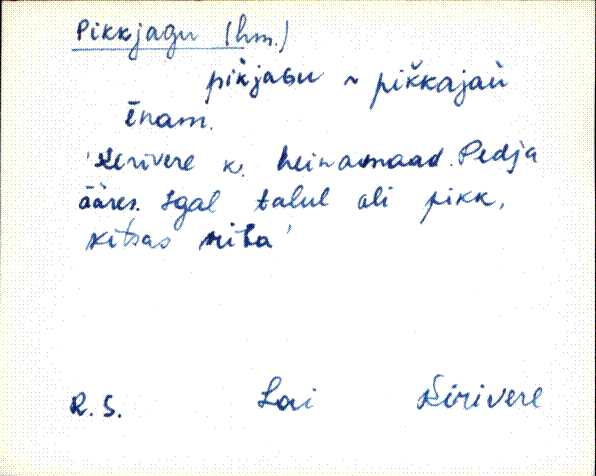 Pikkjagu (hm.)
pikjaGu ~ pikkajaù
ēnam.
'Kirivere k. heinamaad Pedja
ääres. Igal talul oli pikk,
kitsas riba'
R. S. Lai Kirivere